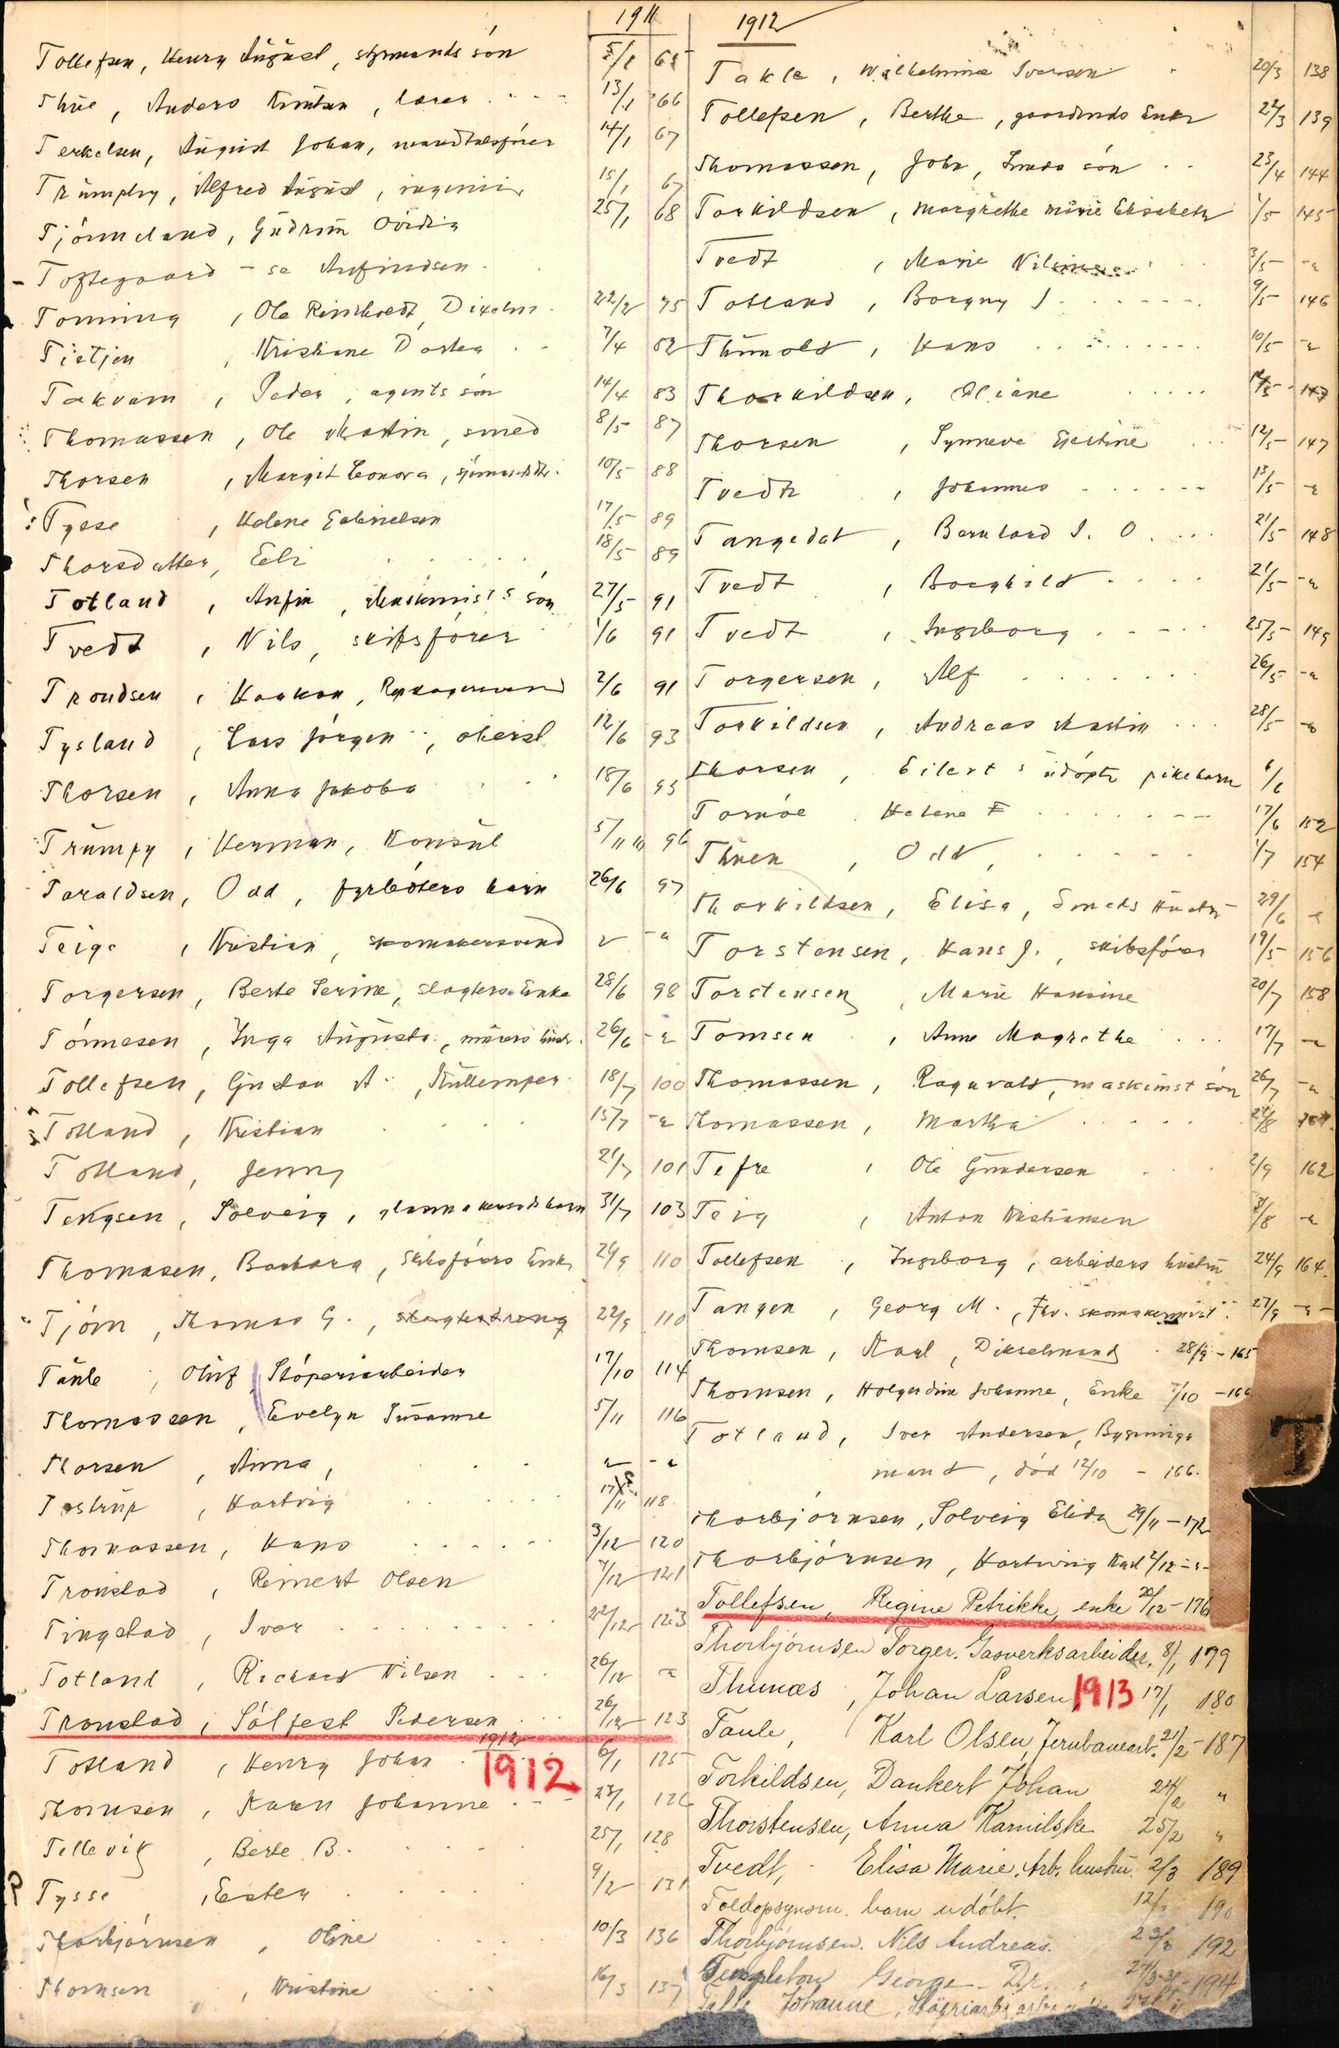 1911
Tollefsen, Henry August, styrmands són 5/1 65
Thue, Anders Knutsen, lærer 13/1 66
Terkelsen, August Johan, mandtalsfórer 14/1 67
Trümphy, Alfred August, ingeniór 15/1 67
Tjónneland, Gudrun Ovidia 25/1 68
Toftegaard - se Anfindsen
Tonning, Ole Reinholdt, Dixelm. 22/2 75
Tietjen, Kristiane Dortea 7/4 82
Takvam, Peder, agents són 14/4 83
Thomassen, Ole Martin, smed 8/5 87
Thorsen, Margit Leonora 10/5 88
Tysse, Helene Gabrielsen 17/5 89
Thorsdatter, Eli 18/5 89
Totland, Anfin, Maskinists són 27/5 91
Tvedt, Nils, skibsfórer 1/6 91
Trondsen, Haakon 2/6 91
Tysland, Lars Jórgen, oberst 12/6 93
Thorsen, Anna Jakoba 18/6 95
Trümpy, Herman, Konsul 5/11 10 96
Taraldsen, Odd, fyrbóters barn 26/6 97
Teige, Kristian, skomakersvend " - "
Torgersen, Berte Serine, slagters Enke 28/6 98
Tónnesen, Inga Augusta, murers hustr. 26/6 - "
Tollefsen, Gustav A., Kullemper 18/7 100
Totland, Kristian 15/7 - "
Totland, Jenny 21/7 101
Tengsen, Solveig 31/7 103
Thomasen, Barbara, Skibsfórers Enke 21/9 110
Tjórn, Thomas G., slagterdreng 22/9 110
Taule, Oluf, Stóperiarbeider 17/10 114
Thomassen, Evelyn Susanne 5/11 116
Thorsen, Anna, " - "
Tostrup, Hartvig 17/11 118
Thomassen, Hans 3/12 120
Tronstad, Reinert Olsen 7/12 121
Tingstad, Iver 22/12 123
Totland, Richard Nilsen 26/12 "
Tronstad, Sólfest Pedersen 26/12 123
1912
1912
Totland, Henry Johan 6/1 125
Thomsen, Karen Johanne 23/1 126
Tellevik, Berte B. 25/1 128
Tysse, Ester 9/2 131
Thorbjórnsen, Oline 10/3 136
Thomsen, Kristine 16/3 137
1912
Takle, Wilhelmine Iversen 20/3 138
Tollefsen, Berthe, gaardmds Enke 22/3 139
Thomassen, John, Smeds són 23/4 144
Torkildsen, Margrethe Marie Elisabeth 1/5 145
Tvedt, Marie 3/5 - "
Totland, Borgny J. 9/5 146
Thunold, Hans 10/5 - "
Thorkildsen, Oliane 12/5 147
Thorsen, Synneve Gjestine 12/5 147
Tvedt, Johannes 13/5 - "
Tangedal, Bernhard J. O. 21/5 148
Tvedt, Borghild 21/5 - "
Tvedt, Ingeborg 25/5 149
Torgersen, Alf 26/5 - "
Torkildsen, Andreas Martin 28/5 - "
Thorsen, Eilert's udópte pikebarn 6/6
Tornóe Helene F 17/6 152
Thuen, Odd, 1/7 154
Thorkildsen, Elisa, Smeds Hustru 29/6 "
Torstensen, Hans J., skibsfórer 19/5 156
Torstensen, Marie Hansine 20/7 158
Tomsen, Anne Magrethe 17/7 - "
Thomassen, Ragnvald, maskinist són 26/7 - "
Thomassen, Martha 24/8
Tefre, Ole Gundersen 2/9 162
Teig, Anton Kristiansen 31/8 - "
Tollefsen, Ingeborg, arbeiders hustru 24/9 164.
Tangen, Georg M., Fhv. 27/9 - " -
Thomsen, Karl, Dikselmand 28/9 - 165
Thomsen, Holgerdine Johanne, Enke 7/10 - 166
Totland, Iver Andersen, Bygnings
mand, død 12/10 - 166.
Thorbjórnsen, Solveig Elida 29/11 - 172
Thorbjórnsen, Hartwing Karl 2/12 - " -
Tollefsen, Regine Petrikke, enke 20/12 - 176
Thorbjórnsen Torger. Gasverksarbeider. 8/1 179
Thunæs, Johan Larsen 1913 17/1 180
Taule, Karl Olsen, Jernbanearb. 21/2 - 187
Torkildsen, Dankert Johan 24/2 "
Thorstensen, Anna Kamilske 25/2 "
Tvedt, Elisa Marie. Arb. hustru. 2/3 189
Toldopsynsm. barn udóbt. 12/3 190
Thorbjórnsen. Nils Andreas. 23/3 192
Templeton George - Dr. 194
Johanne
T